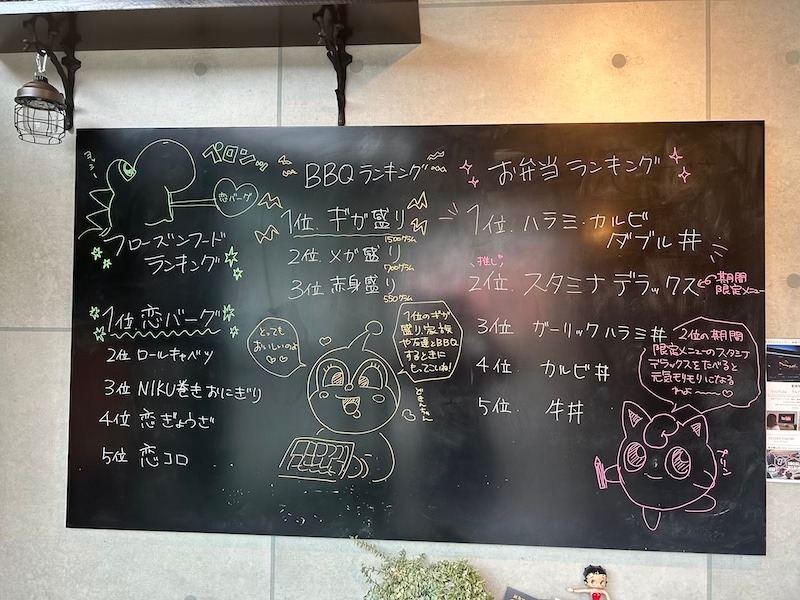 ヨッシー
ペロン
恋バーグ
フローズンフード
ランキング
1位 恋バーグ
2位 ロールキャベツ
3位 NIKU巻きおにぎり
4位 恋ぎょうざ
5位 恋コロ
BBQランキング
1位. ギガ盛り
1500グラム
2位 メガ盛り
700グラム
3位 赤身盛り
550グラム
とっても
おいしいのよ
1位のギガ
盛り、家族
や友達とBBQ
するときに
もってこいね!
どきんちゃん
お弁当 ランキング
1位. ハラミ・カルビ
ダブル丼
推し
2位. スタミナ デラックス
期間
限定メニュー
3位 ガーリックハラミ丼
4位 カルビ丼
5位 牛丼
2位の期間
限定メニューのスタミナ
デラックスをたべると
元気モリモリになる
わよ〜〜
プリン